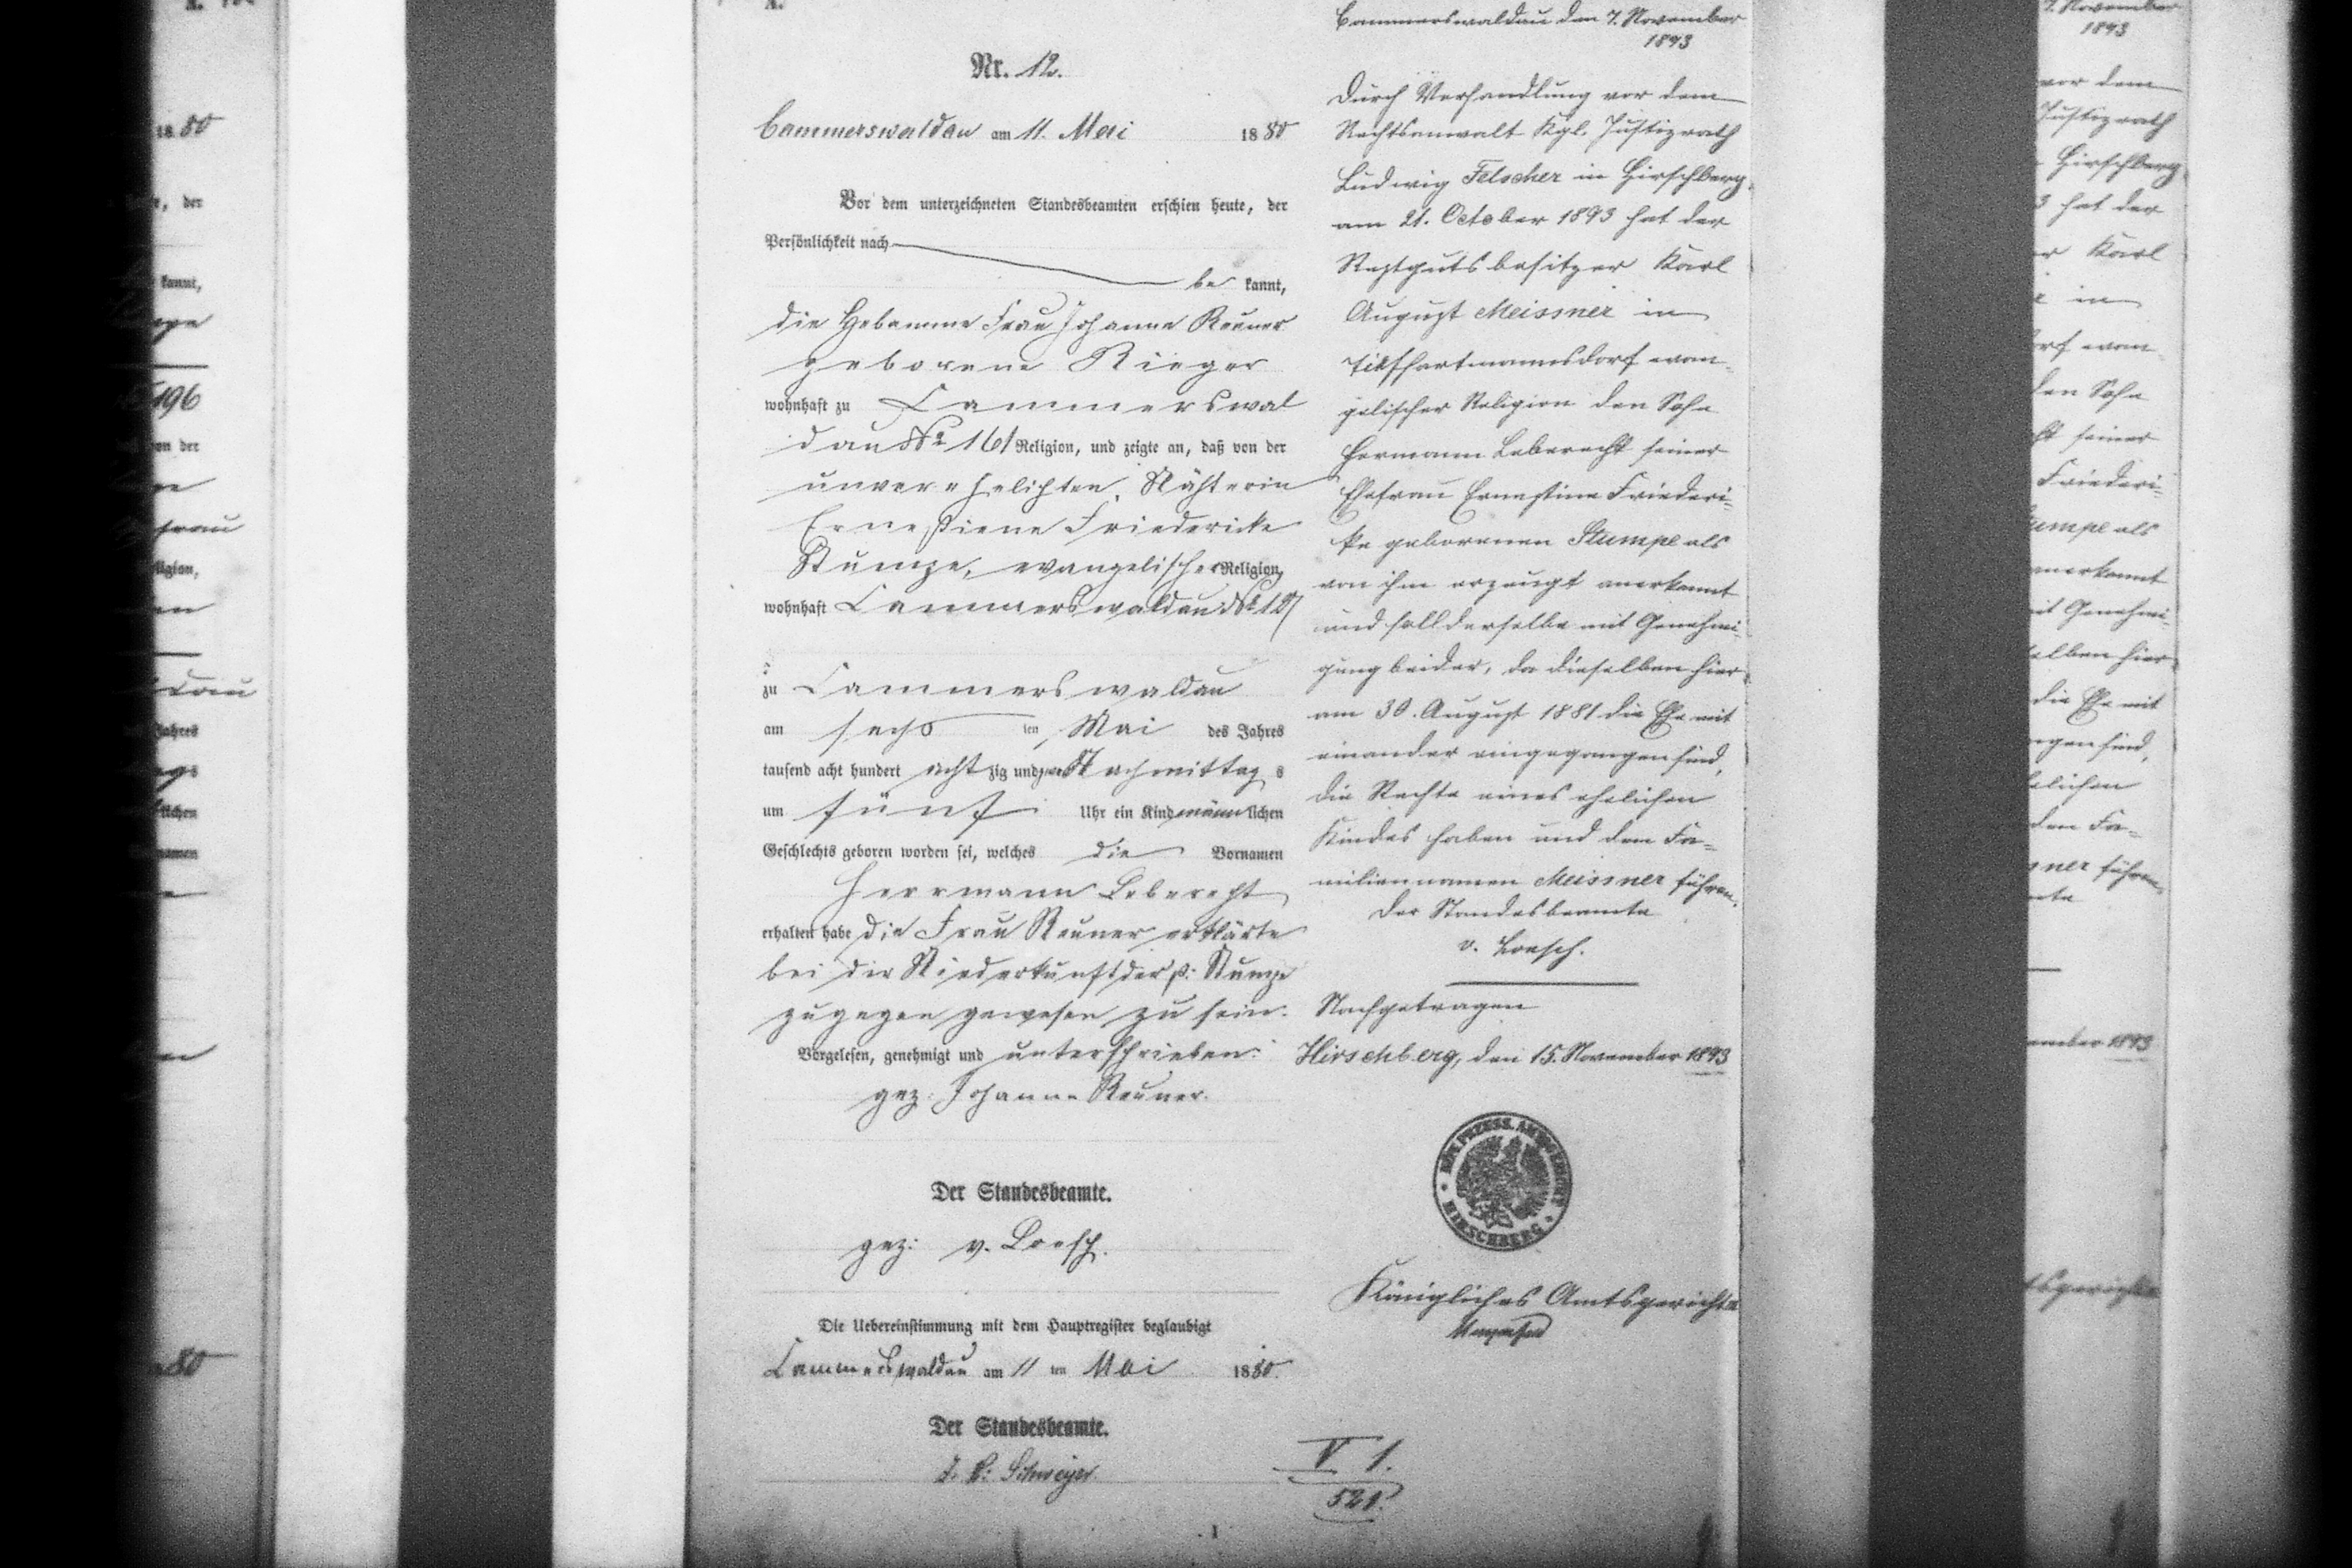 A.
Nr. 12.
Cammerswaldau am 11. Mai 1880
Vor dem unterzeichneten Standesbeamten erschien heute, der
Persönlichkeit nach
be kannt,
die Hebamme Frau Johanne Reuner
geborene Rieger
wohnhaft zu Cammerswal
dau No 161 Religion, und zeigte an, daß von der
unverehelichten, Nähterin
Ernestiene Friedericke
Stumpe, evangelischer Religion,
wohnhaft Cammerswaldau No 127
zu Cammerswaldau
am sechs ten Mai des Jahres
tausend acht hundert achtzig und Nachmittags
um fünf Uhr ein Kind männlichen
Geschlechts geboren worden sei, welches die Vornamen
Herrmann Leberecht
erhalten habe die Frau Reuner erklärte
bei der Niederkunft der p: Stumpe
zugegen gewesen zu sein.
Vorgelesen, genehmigt und unterschrieben:
gez: Johanne Reuner.
Der Standesbeamte.
gez: v. Loesch.
Die Uebereinstimmung mit dem Hauptregister beglaubigt
Cammerswaldau am 11 ten Mai 1880.
Der Standesbeamte.
Cammerswaldau den 7. November
1893
Durch Verhandlung vor dem
Rechtsanwalt Kgl. Justizrath
Ludwig Felscher in Hirschberg
am 21. October 1893 hat der
Restgutsbesitzer Karl
August Meissner in
Tiefhartmannsdorf evan-
gelischer Religion den Sohn
Hermann Leberecht seiner
Ehefrau Ernestine Friederi-
ke geborenen Stumpe als
von ihm erzeugt anerkannt
und soll derselbe mit Genehmi-
gung beider, da dieselben hier
am 30. August 1881 die Ehe mit
einander eingegangen sind,
die Rechte eines ehelichen
Kindes haben und den Fa-
miliennamen Meissner führen.
Der Standesbeamte
v. Loesch.
Nachgetragen
Hirschberg, den 15. November 1893
HIRSCHBERG
Königliches Amtsgericht
V 1.
521.
1